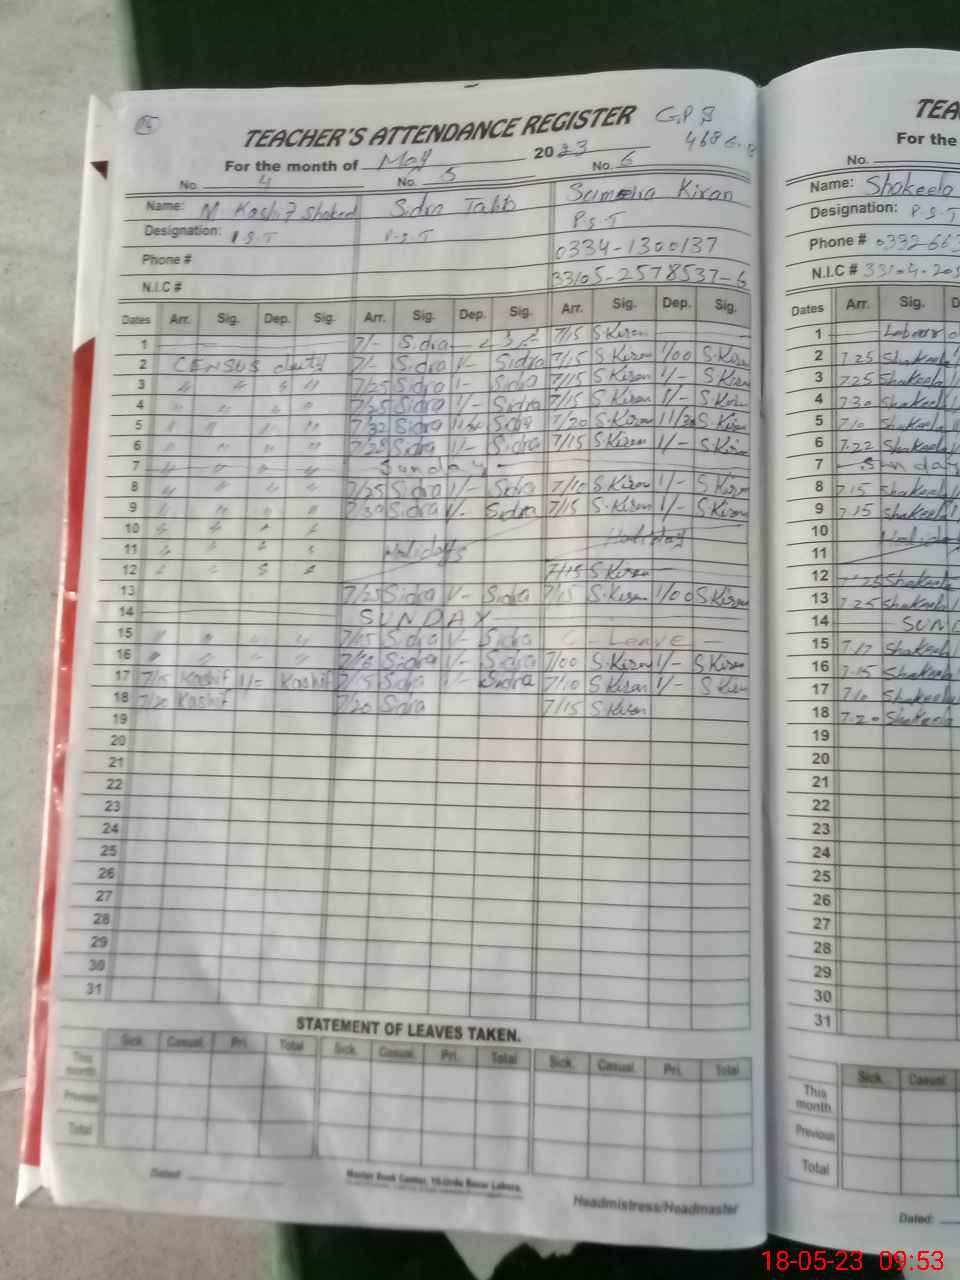 15
TEACHER'S ATTENDANCE REGISTER G.P.S
For the month of May 2023 468 G.B
No. 4 No. 5 No. 6
Name: M Kashif Shakeel Sidra Talib Sumeria Kiran
Designation: P.S.T P.S.T P.S.T
Phone # 0334-1300137
N.I.C # 33105-2578537-6
Dates Arr. Sig. Dep. Sig. Arr. Sig. Dep. Sig. Arr. Sig. Dep. Sig.
1 7/- Sidra 7/15 S.Kiran
2 CENSUS duty 7/- Sidra 1/- Sidra 7/15 S.Kiran 1/00 S.Kiran
3 〃 〃 〃 〃 7/25 Sidra 1- Sidra 7/15 S.Kiran 1/- S.Kiran
4 〃 〃 〃 〃 7/25 Sidra 1/- Sidra 7/15 S.Kiran 1/- S.Kiran
5 〃 〃 〃 〃 7/32 Sidra Sidra 7/20 S.Kiran 11/30 S.Kiran
6 〃 〃 〃 〃 7/25 Sidra 1/- Sidra 7/15 S.Kiran 1/- S.Kiran
7 〃 〃 〃 〃 Sunday
8 〃 〃 〃 〃 7/25 Sidra 1/- Sidra 7/10 S.Kiran 1/- S.Kiran
9 〃 〃 〃 〃 7/30 Sidra 1/- Sidra 7/15 S.Kiran 1/- S.Kiran
10 〃 〃 〃 〃 Holiday
11 〃 〃 〃 〃 Holidays
12 〃 〃 〃 〃 7/15 S.Kiran
13 7/25 Sidra 1/- Sidra 7/15 S.Kiran 1/00 S.Kiran
14 SUNDAY
15 〃 〃 〃 〃 7/15 Sidra 1/- Sidra C-Leave
16 〃 〃 〃 〃 7/16 Sidra 1/- Sidra 7/00 S.Kiran 1/- S.Kiran
17 7/15 Kashif 1/= Kashif 7/15 Sidra 1/- Sidra 7/10 S.Kiran 1/- S.Kiran
18 7/20 Kashif 7/20 Sidra 7/15 S.Kiran
19
20
21
22
23
24
25
26
27
28
29
30
31
STATEMENT OF LEAVES TAKEN.
Sick. Casual. Pri. Total Sick. Casual. Pri. Total Sick. Casual. Pri. Total
This month.
Previous
Total
Dated:
Master Book Center, 10-Urdu Bazar Lahore.
Headmistress/Headmaster
TEA
For the
No.
Name: Shakeela
Designation: P.S.T
Phone # 0332-663
N.I.C # 33104-205
Dates Arr. Sig. D
1 Labour d
2 7.25 Shakeela
3 7.25 Shakeela
4 7.30 Shakeela
5 7.10 Shakeela
6 7.22 Shakeela
7 Sunday
8 7.15 Shakeela
9 7.15 Shakeela
10 Holiday
11
12 7.25 Shakeela
13 7.25 Shakeela
14 SUND
15 7.17 Shakeela
16 7.15 Shakeela
17 7.10 Shakeela
18 7.20 Shakeela
19
20
21
22
23
24
25
26
27
28
29
30
31
Sick. Casual.
This month.
Previous
Total
Dated:
18-05-23 09:53